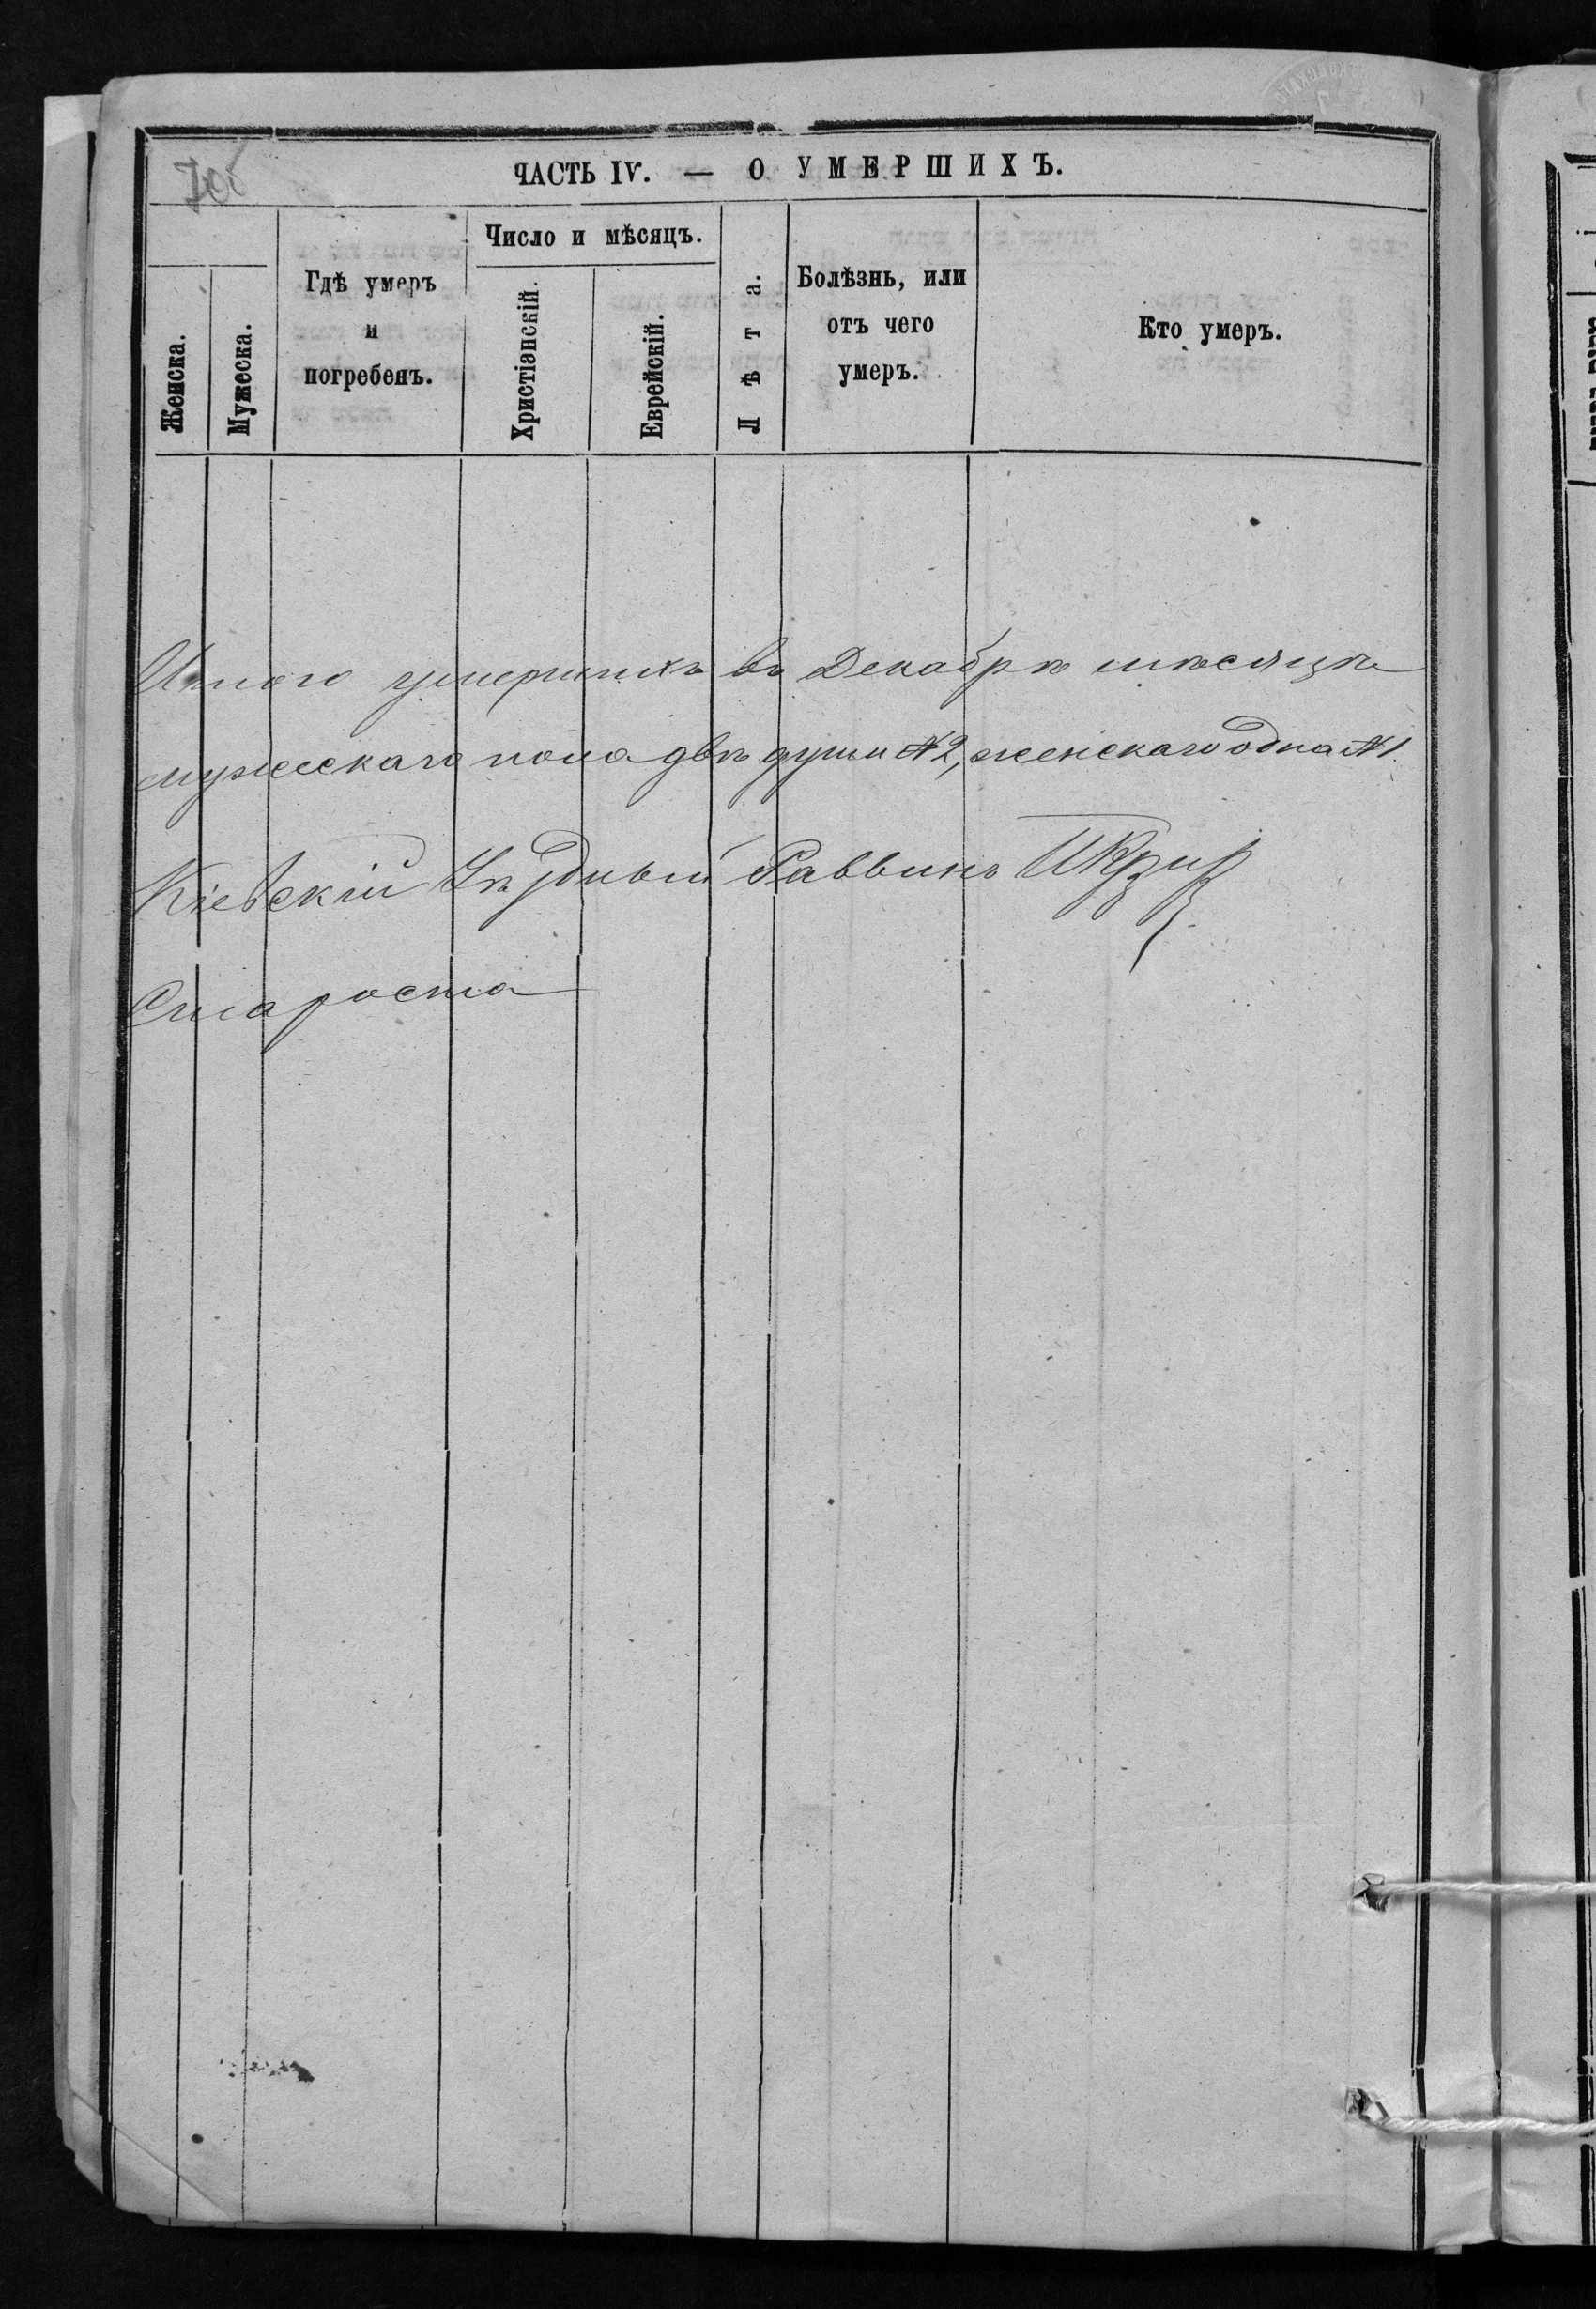 ЧАСТЬ IV. — О УМЕРШИХЪ.
Женска.
Мужеска.
Гдѣ умеръ
и
погребенъ.
Число и мѣсяцъ.
Христіанскій.
Еврейскій.
Лѣта.
Болѣзнь, или
отъ чего
умеръ.
Кто умеръ.
Итого умершихъ въ Декабрѣ мѣсяцѣ
мужескаго пола двѣ души №2, женскаго одна №1.
Кіевскій Уѣздный Раввинъ
Староста